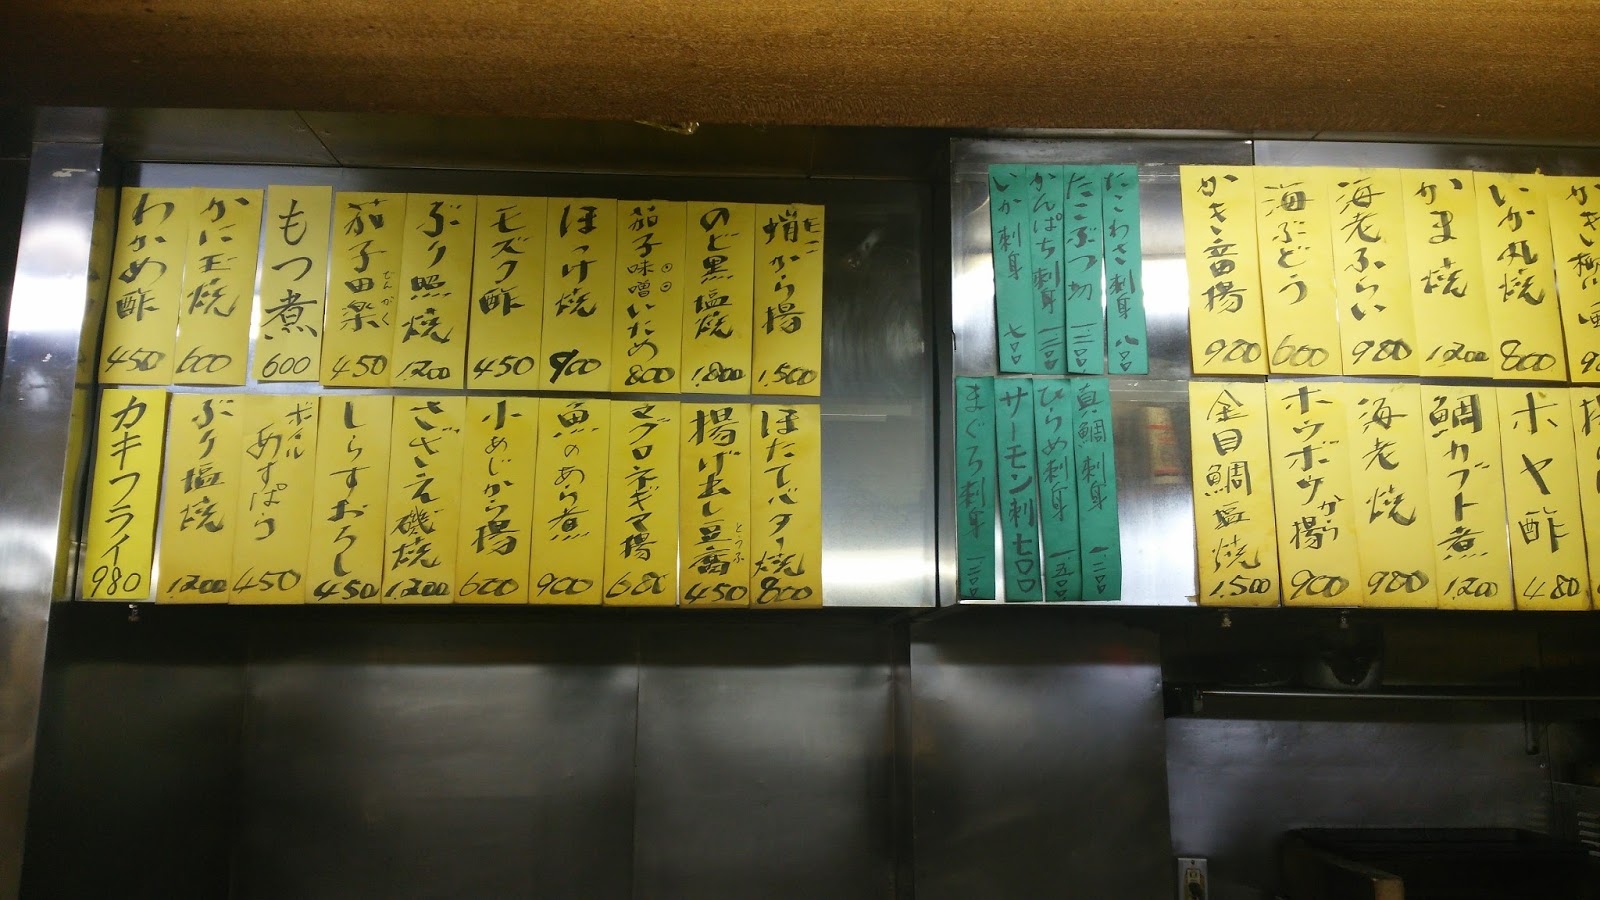 わかめ酢 450
かに玉焼 600
もつ煮 600
茄子田楽 でんがく 450
ぶり照焼 1,200
モズク酢 450
ほっけ焼 900
茄子味噌いため 800
のど黒塩焼 1,800
から揚 1,500
カキフライ 980
ぶり塩焼 1,200
ボイル あすぱら 450
しらすおろし 450
さざえ磯焼 1,200
小あじから揚 600
魚のあら煮 900
マグロネギマ揚 680
揚げ出し豆腐 とうふ 450
ほたてバター焼 800
いか刺身 七〇〇
かんぱち刺身
たこぶつ切
たこわさ刺身 八〇〇
まぐろ刺身
サーモン刺 七〇〇
ひらめ刺身 一、五〇〇
真鯛刺身 一、二〇〇
かき唐揚 980
海ぶどう 600
海老ふらい 980
かま焼 1,200
いか丸焼 800
金目鯛塩焼 1,500
ホウボウから揚 900
海老焼 980
鯛カブト煮 1,200
ホヤ酢 480